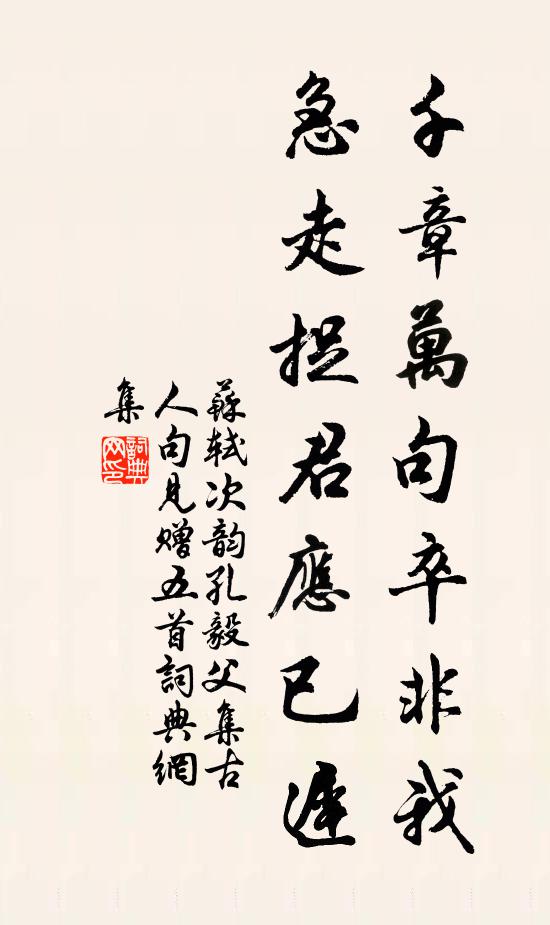 千章萬句卒非我
急走捉君應已遲
蘇軾次韵孔毅父集古
人句見贈五首詞典網
集
詞典
网印